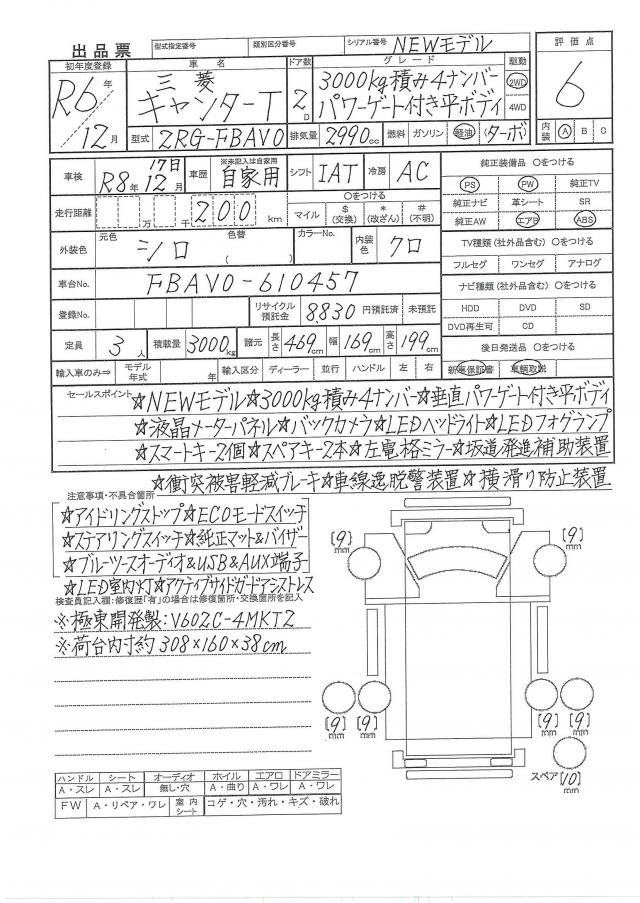 出品票
型式指定番号 類別区分番号 シリアル番号 NEWモデル
評価点
6
初年度登録 車名 ドア数 グレード 駆動
R6年 12月
三菱 キャンターT
2D
3000kg積み4ナンバー
パワーゲート付き平ボディ
2WD
4WD
型式 2RG-FBAV0 排気量 2990cc 燃料 ガソリン 軽油 (ターボ)
内装 A B C
車検 R8年12月17日 車歴 ※未記入は自家用 自家用 シフト IAT 冷房 AC
走行距離 万 千 200 km
〇をつける
マイル $(交換) *(改ざん) #(不明)
外装色 元色 シロ 色替 ( ) カラーNo. 内装色 クロ
車台No. FBAV0-610457
登録No. リサイクル預託金 8,830 円預託済 未預託
定員 3人 積載量 3000kg 諸元 長さ 469cm 幅 169cm 高さ 199cm
輸入車のみ⇒ モデル年式 年 輸入区分 ディーラー 並行 ハンドル 左 右
純正装備品 〇をつける
PS PW 純正TV
純正ナビ 革シート SR
純正AW エアB ABS
TV種類(社外品含む) 〇をつける
フルセグ ワンセグ アナログ
ナビ種類(社外品含む) 〇をつける
HDD DVD SD
DVD再生可 CD
後日発送品 〇をつける
新車保証書 車輌取説
セールスポイント ☆NEWモデル☆3000kg積み4ナンバー☆垂直パワーゲート付き平ボディ
☆液晶メーターパネル☆バックカメラ☆LEDヘッドライト☆LEDフォグランプ
☆スマートキー2個☆スペアキー2本☆左電格ミラー☆坂道発進補助装置
☆衝突被害軽減ブレーキ☆車線逸脱警装置☆横滑り防止装置
注意事項・不具合箇所
☆アイドリングストップ☆ECOモードスイッチ
☆ステアリングスイッチ☆純正マット&バイザー
☆ブルーツースオーディオ&USB&AUX端子
☆LED室内灯☆アクティブサイドガードアシストレス
検査員記入欄:修復歴「有」の場合は修復箇所・交換箇所を記入
※極東開発製:V602C-4MKT2
※荷台内寸約308×160×38cm
[9]mm
[9]mm
[9]mm [9]mm
[9]mm [9]mm
スペア[10]mm
ハンドル シート オーディオ ホイル エアロ ドアミラー
A・スレ A・スレ 無し・穴 A・曲り A・ワレ A・ワレ
FW A・リペア・ワレ 室内シート コゲ・穴・汚れ・キズ・破れ